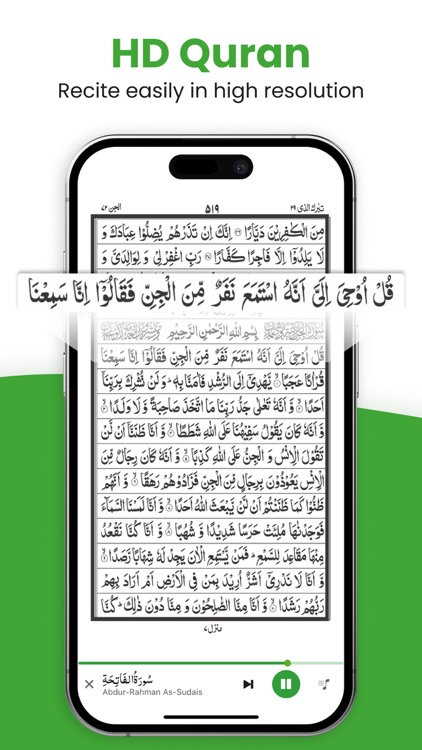 HD Quran
Recite easily in high resolution
تبٰرك الذی ٢٩ ٥١٩ الجن ٧٢
مِنَ الْكٰفِرِیْنَ دَیَّارًا ۝ اِنَّكَ اِنْ تَذَرْهُمْ یُضِلُّوْا عِبَادَكَ وَ
لَا یَلِدُوْۤا اِلَّا فَاجِرًا كَفَّارًا ۝ رَبِّ اغْفِرْ لِیْ وَ لِوَالِدَیَّ وَ
قُلْ اُوْحِیَ اِلَیَّ اَنَّهُ اسْتَمَعَ نَفَرٌ مِّنَ الْجِنِّ فَقَالُوْۤا اِنَّا سَمِعْنَا
بِسْمِ اللّٰهِ الرَّحْمٰنِ الرَّحِیْمِ
قُلْ اُوْحِیَ اِلَیَّ اَنَّهُ اسْتَمَعَ نَفَرٌ مِّنَ الْجِنِّ فَقَالُوْۤا اِنَّا سَمِعْنَا
قُرْاٰنًا عَجَبًا ۝ یَّهْدِیْۤ اِلَی الرُّشْدِ فَاٰمَنَّا بِهٖ ؕ وَ لَنْ نُّشْرِكَ بِرَبِّنَاۤ
اَحَدًا ۝ وَّ اَنَّهٗ تَعٰلٰی جَدُّ رَبِّنَا مَا اتَّخَذَ صَاحِبَةً وَّ لَا وَلَدًا ۝
وَّ اَنَّهٗ كَانَ یَقُوْلُ سَفِیْهُنَا عَلَی اللّٰهِ شَطَطًا ۝ وَّ اَنَّا ظَنَنَّاۤ اَنْ لَّنْ
تَقُوْلَ الْاِنْسُ وَ الْجِنُّ عَلَی اللّٰهِ كَذِبًا ۝ وَّ اَنَّهٗ كَانَ رِجَالٌ مِّنَ
الْاِنْسِ یَعُوْذُوْنَ بِرِجَالٍ مِّنَ الْجِنِّ فَزَادُوْهُمْ رَهَقًا ۝ وَّ اَنَّهُمْ
ظَنُّوْا كَمَا ظَنَنْتُمْ اَنْ لَّنْ یَّبْعَثَ اللّٰهُ اَحَدًا ۝ وَّ اَنَّا لَمَسْنَا السَّمَآءَ
فَوَجَدْنٰهَا مُلِئَتْ حَرَسًا شَدِیْدًا وَّ شُهُبًا ۝ وَّ اَنَّا كُنَّا نَقْعُدُ
مِنْهَا مَقَاعِدَ لِلسَّمْعِ ؕ فَمَنْ یَّسْتَمِعِ الْاٰنَ یَجِدْ لَهٗ شِهَابًا رَّصَدًا ۝
وَّ اَنَّا لَا نَدْرِیْۤ اَشَرٌّ اُرِیْدَ بِمَنْ فِی الْاَرْضِ اَمْ اَرَادَ بِهِمْ
رَبُّهُمْ رَشَدًا ۝ وَّ اَنَّا مِنَّا الصّٰلِحُوْنَ وَ مِنَّا دُوْنَ ذٰلِكَ ؕ كُنَّا
منزل ٧
سُوْرَةُ الْفَاتِحَةِ
Abdur-Rahman As-Sudais